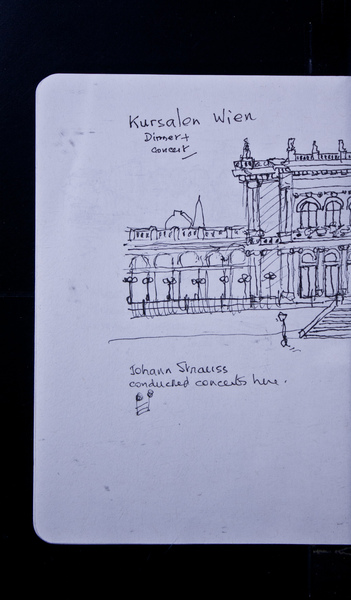 Kursalen Wien
Dinner +
concert
Johann Strauss
conducted concerts here.